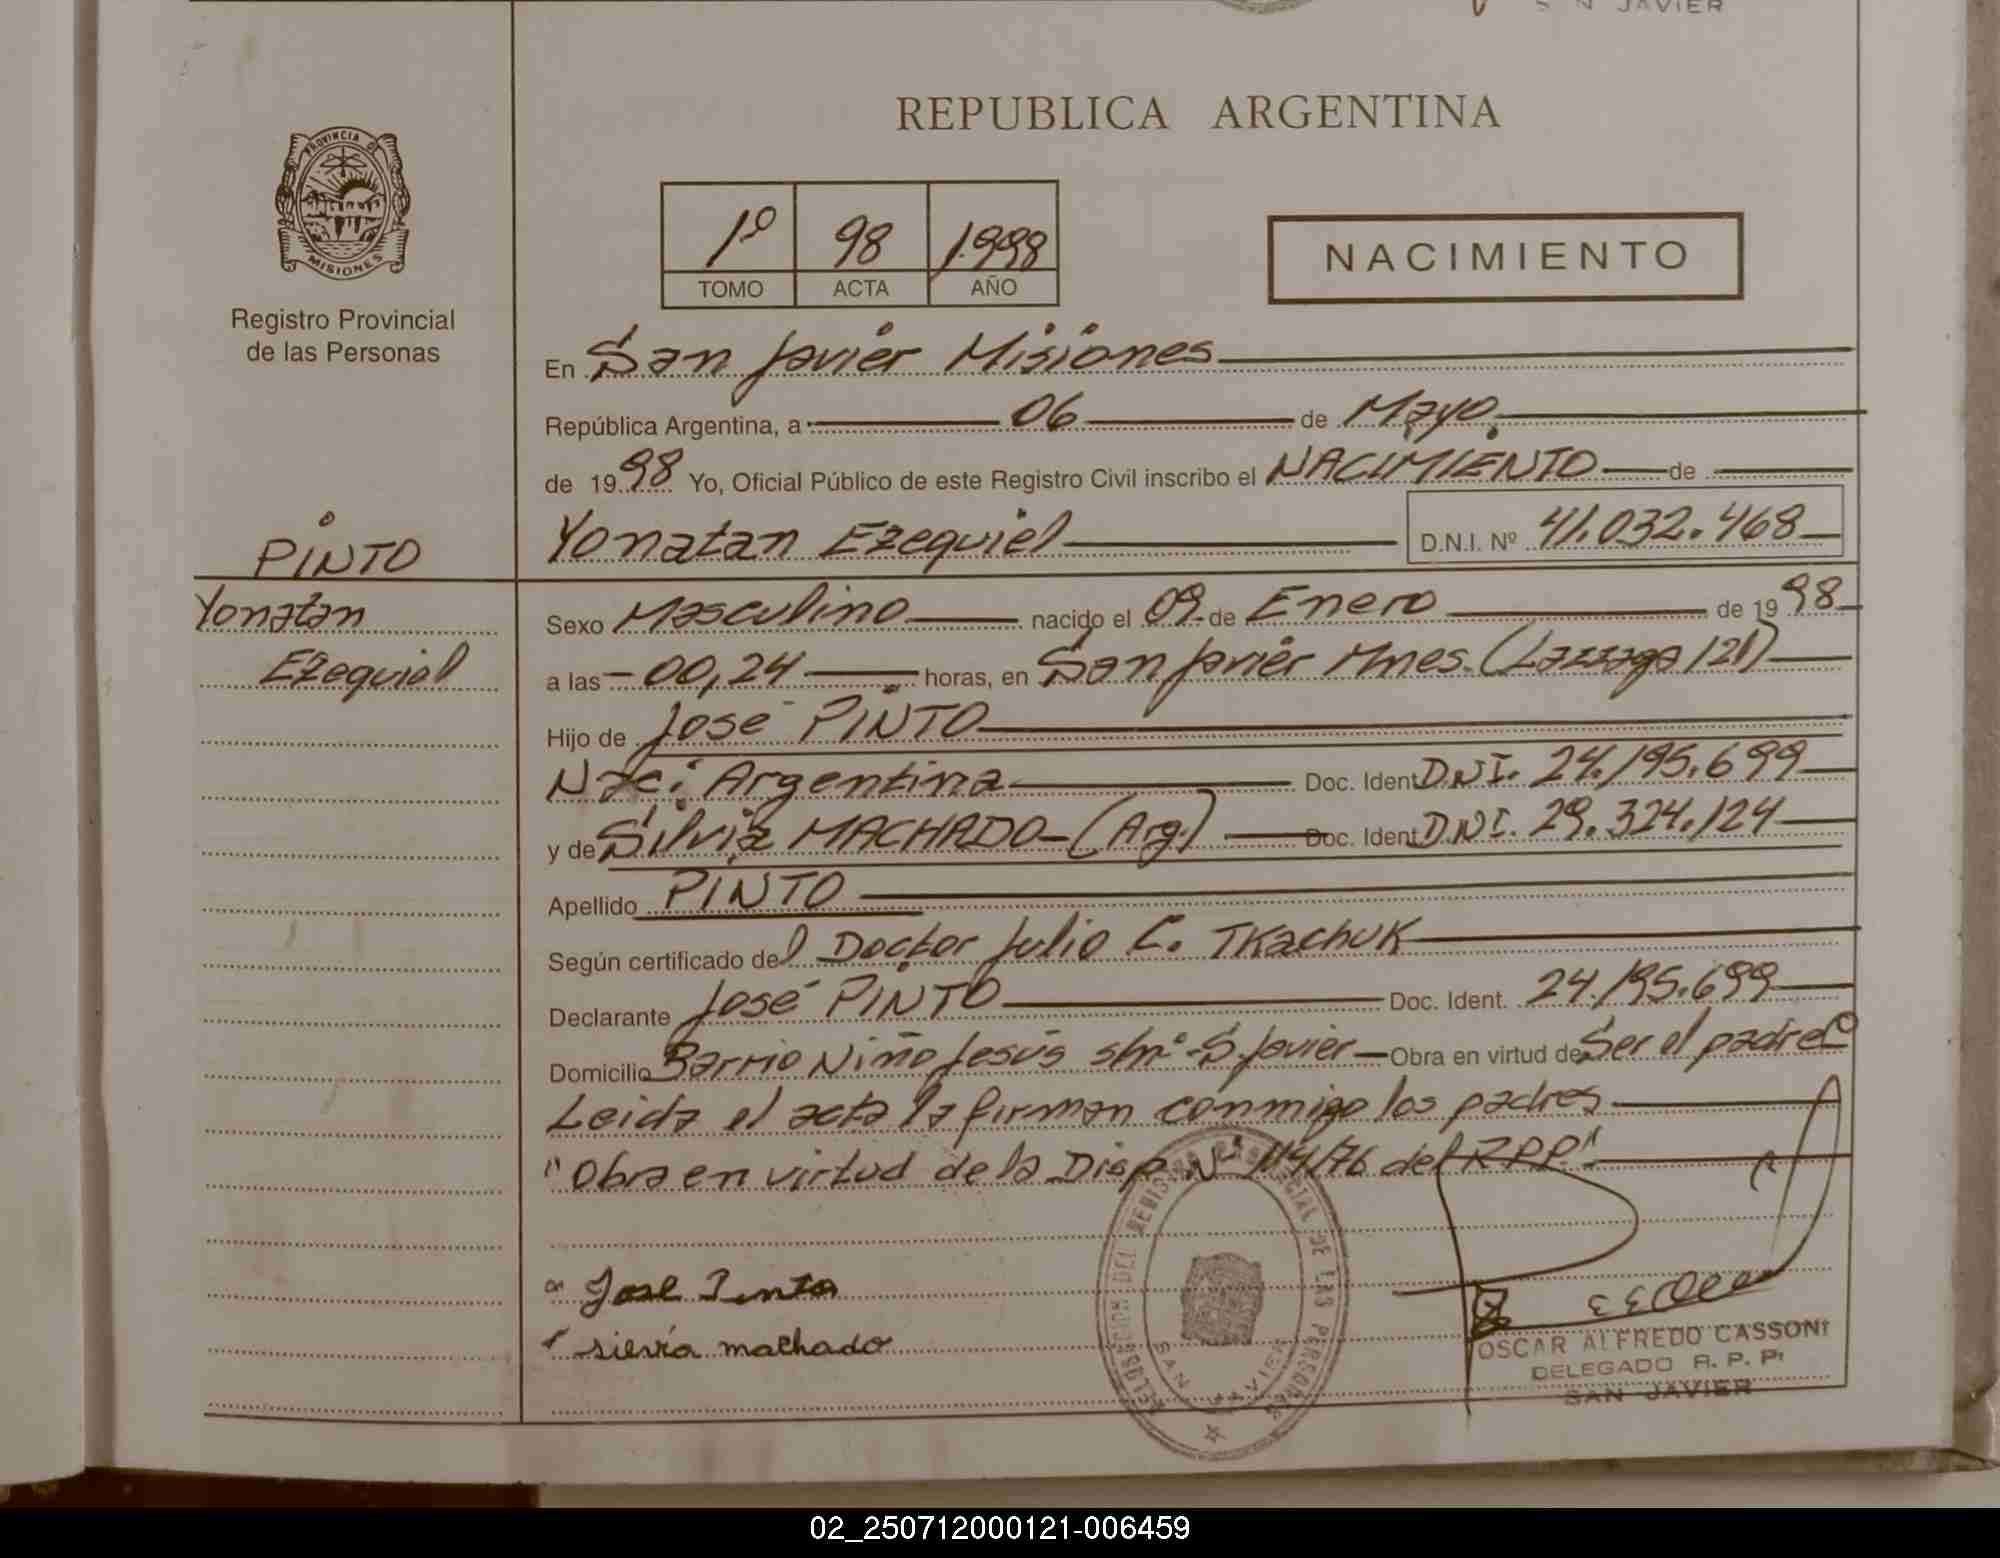 S N JAVIER
REPUBLICA ARGENTINA
PROVINCIA DE
MISIONES
Registro Provincial
de las Personas
1º 98 1.998
TOMO ACTA AÑO
NACIMIENTO
En San Javier Misiones
República Argentina, a 06 de Mayo
de 19 98 Yo, Oficial Público de este Registro Civil inscribo el NACIMIENTO de
PINTO
Yonatan
Ezequiel
Yonatan Ezequiel D.N.I. Nº 41.032.468
Sexo Masculino nacido el 09 de Enero de 19 98
a las 00,24 horas, en San Javier Mnes. (Lazzaga 121)
Hijo de José PINTO
Nac: Argentina Doc. Ident DNI. 24.195.699
y de Silvia MACHADO (Arg.) Doc. Ident DNI. 29.324.124
Apellido PINTO
Según certificado del Doctor Julio C. TKachuK
Declarante José PINTO Doc. Ident. 24.195.699
Domicilio Barrio Niño Jesús s/nº - S. Javier Obra en virtud de Ser el padre
Leida el acta la firman conmigo los padres
"Obra en virtud de la Disp Nº 114/76 del R.P.P."
Jose Pinto
silvia machado
DELEGACION DEL REGISTRO PROVINCIAL DE LAS PERSONAS
SAN JAVIER
OSCAR ALFREDO CASSONI
DELEGADO R. P. P.
SAN JAVIER
02_250712000121-006459